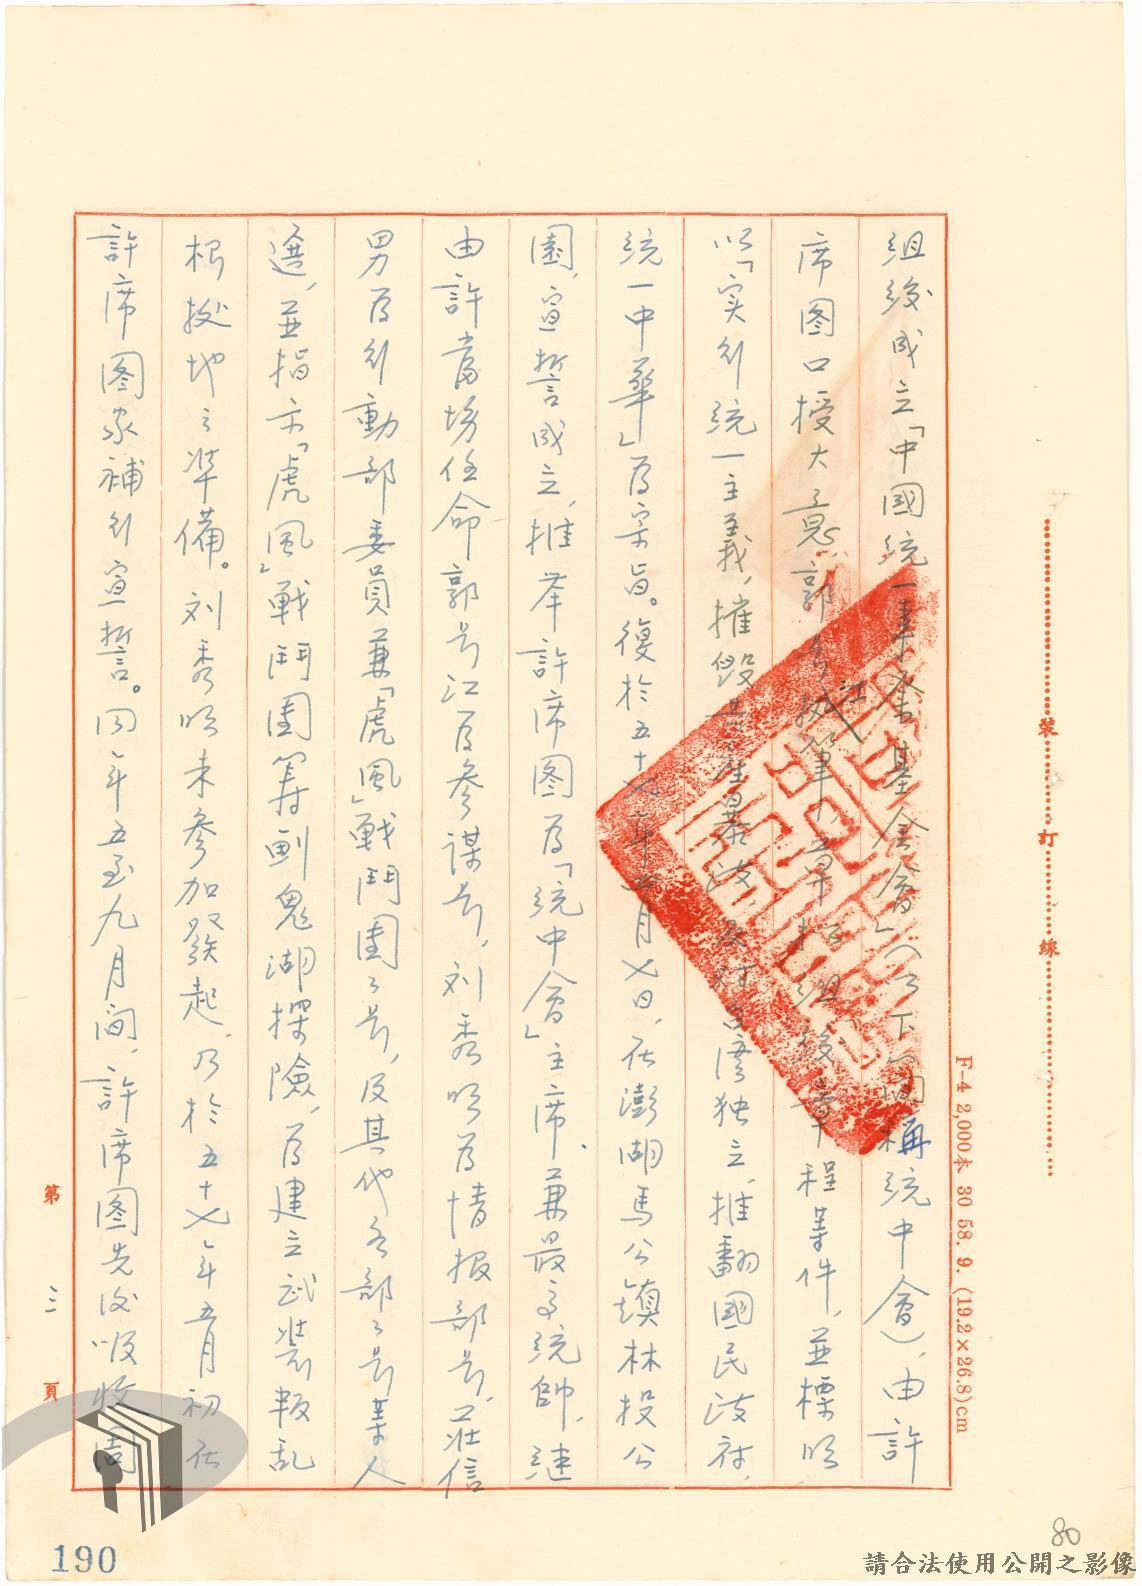 組後成立「中國統一事業基金會」（以下簡稱統中會），由許
席图口授大意，郭号江執筆，草拟組後章程等件，並標明
以「实行統一主義，摧毀共產暴政，反对台湾独立，推翻國民政府，
統一中華」為宗旨。復於五十七年五月七日，在澎湖馬公鎮林投公
園，宣誓成立，推举許席图為「統中會」主席，兼最高統帥，繼
由許當場任命郭号江為參謀长，刘秀明為情报部长，莊信
男為行動部委員兼「虎風」戰鬥團之长，及其他各部之长等人
選，並指示「虎風」戰鬥團筹劃鬼湖探險，為建立武装叛乱
根据地之準備。刘秀明未參加發起，乃於五十七年五月初在
許席图家補行宣誓。同年五至九月间，許席图先后吸收周
裝 訂 線
F-4 2,000本 30 58. 9. (19.2×26.8)cm
第 三 頁
80
190
請合法使用公開之影像